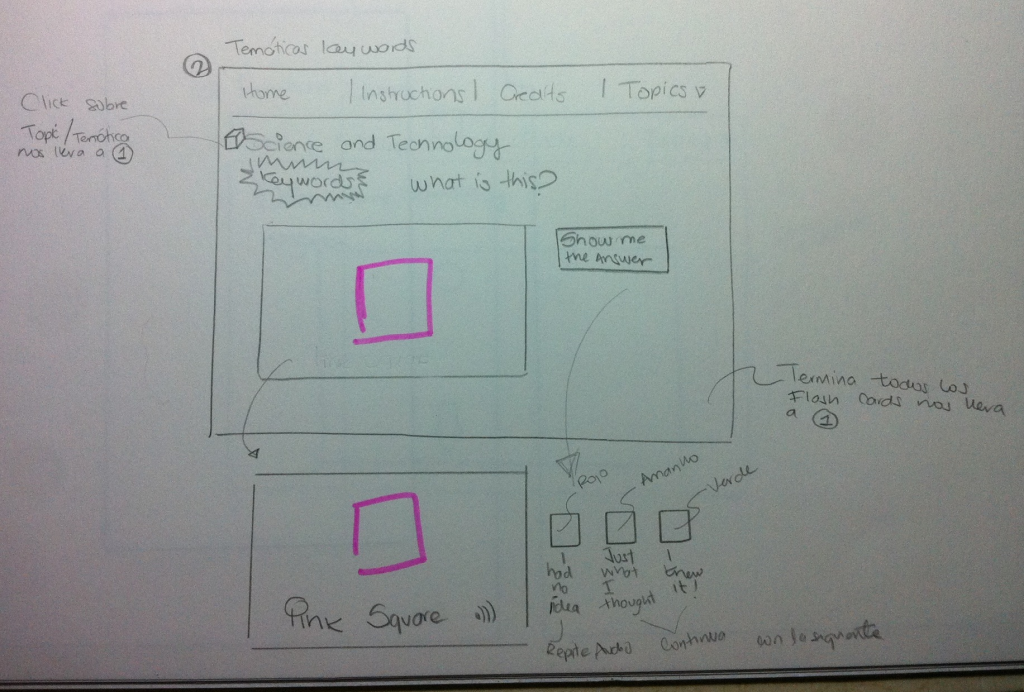 Temáticas keywords
2
Home | Instructions | Credits | Topics
Click sobre
Topic/Temática
nos lleva a 1
Science and Technology
Keywords
what is this?
Show me
the Answer
Termina todos los
Flash Cards nos lleva
a 1
Rojo
Amarillo
Verde
Pink Square
I
had
no
idea
Just
what
I
thought
I
knew
it!
Repite Audio
Continua con la siguiente